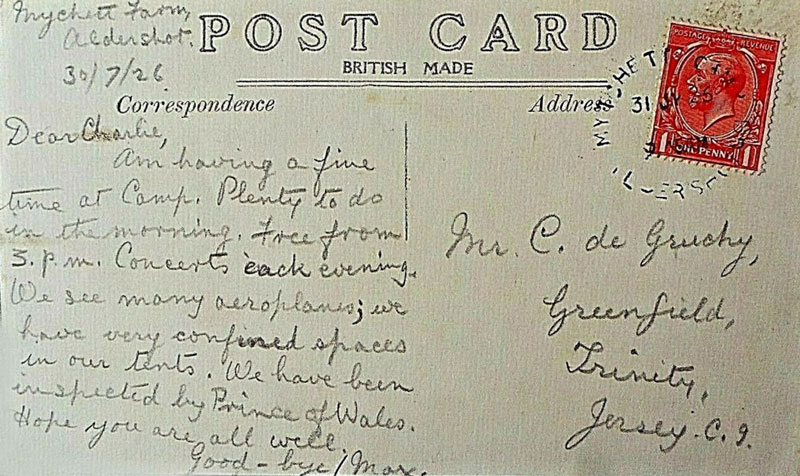 Mychett Farm,
Aldershot.
30/7/26
POST CARD
BRITISH MADE
Correspondence
Address
Dear Charlie,
Am having a fine
time at Camp. Plenty to do
in the morning. Free from
3. p.m. Concerts each evening.
We see many aeroplanes; we
have very confined spaces
in our tents. We have been
inspected by Prince of Wales.
Hope you are all well.
Good-bye/Max.
Mr. C. de Gruchy,
Greenfield,
Trinity,
Jersey. C.I.
POSTAGE REVENUE
1 ONE PENNY 1
31 JY